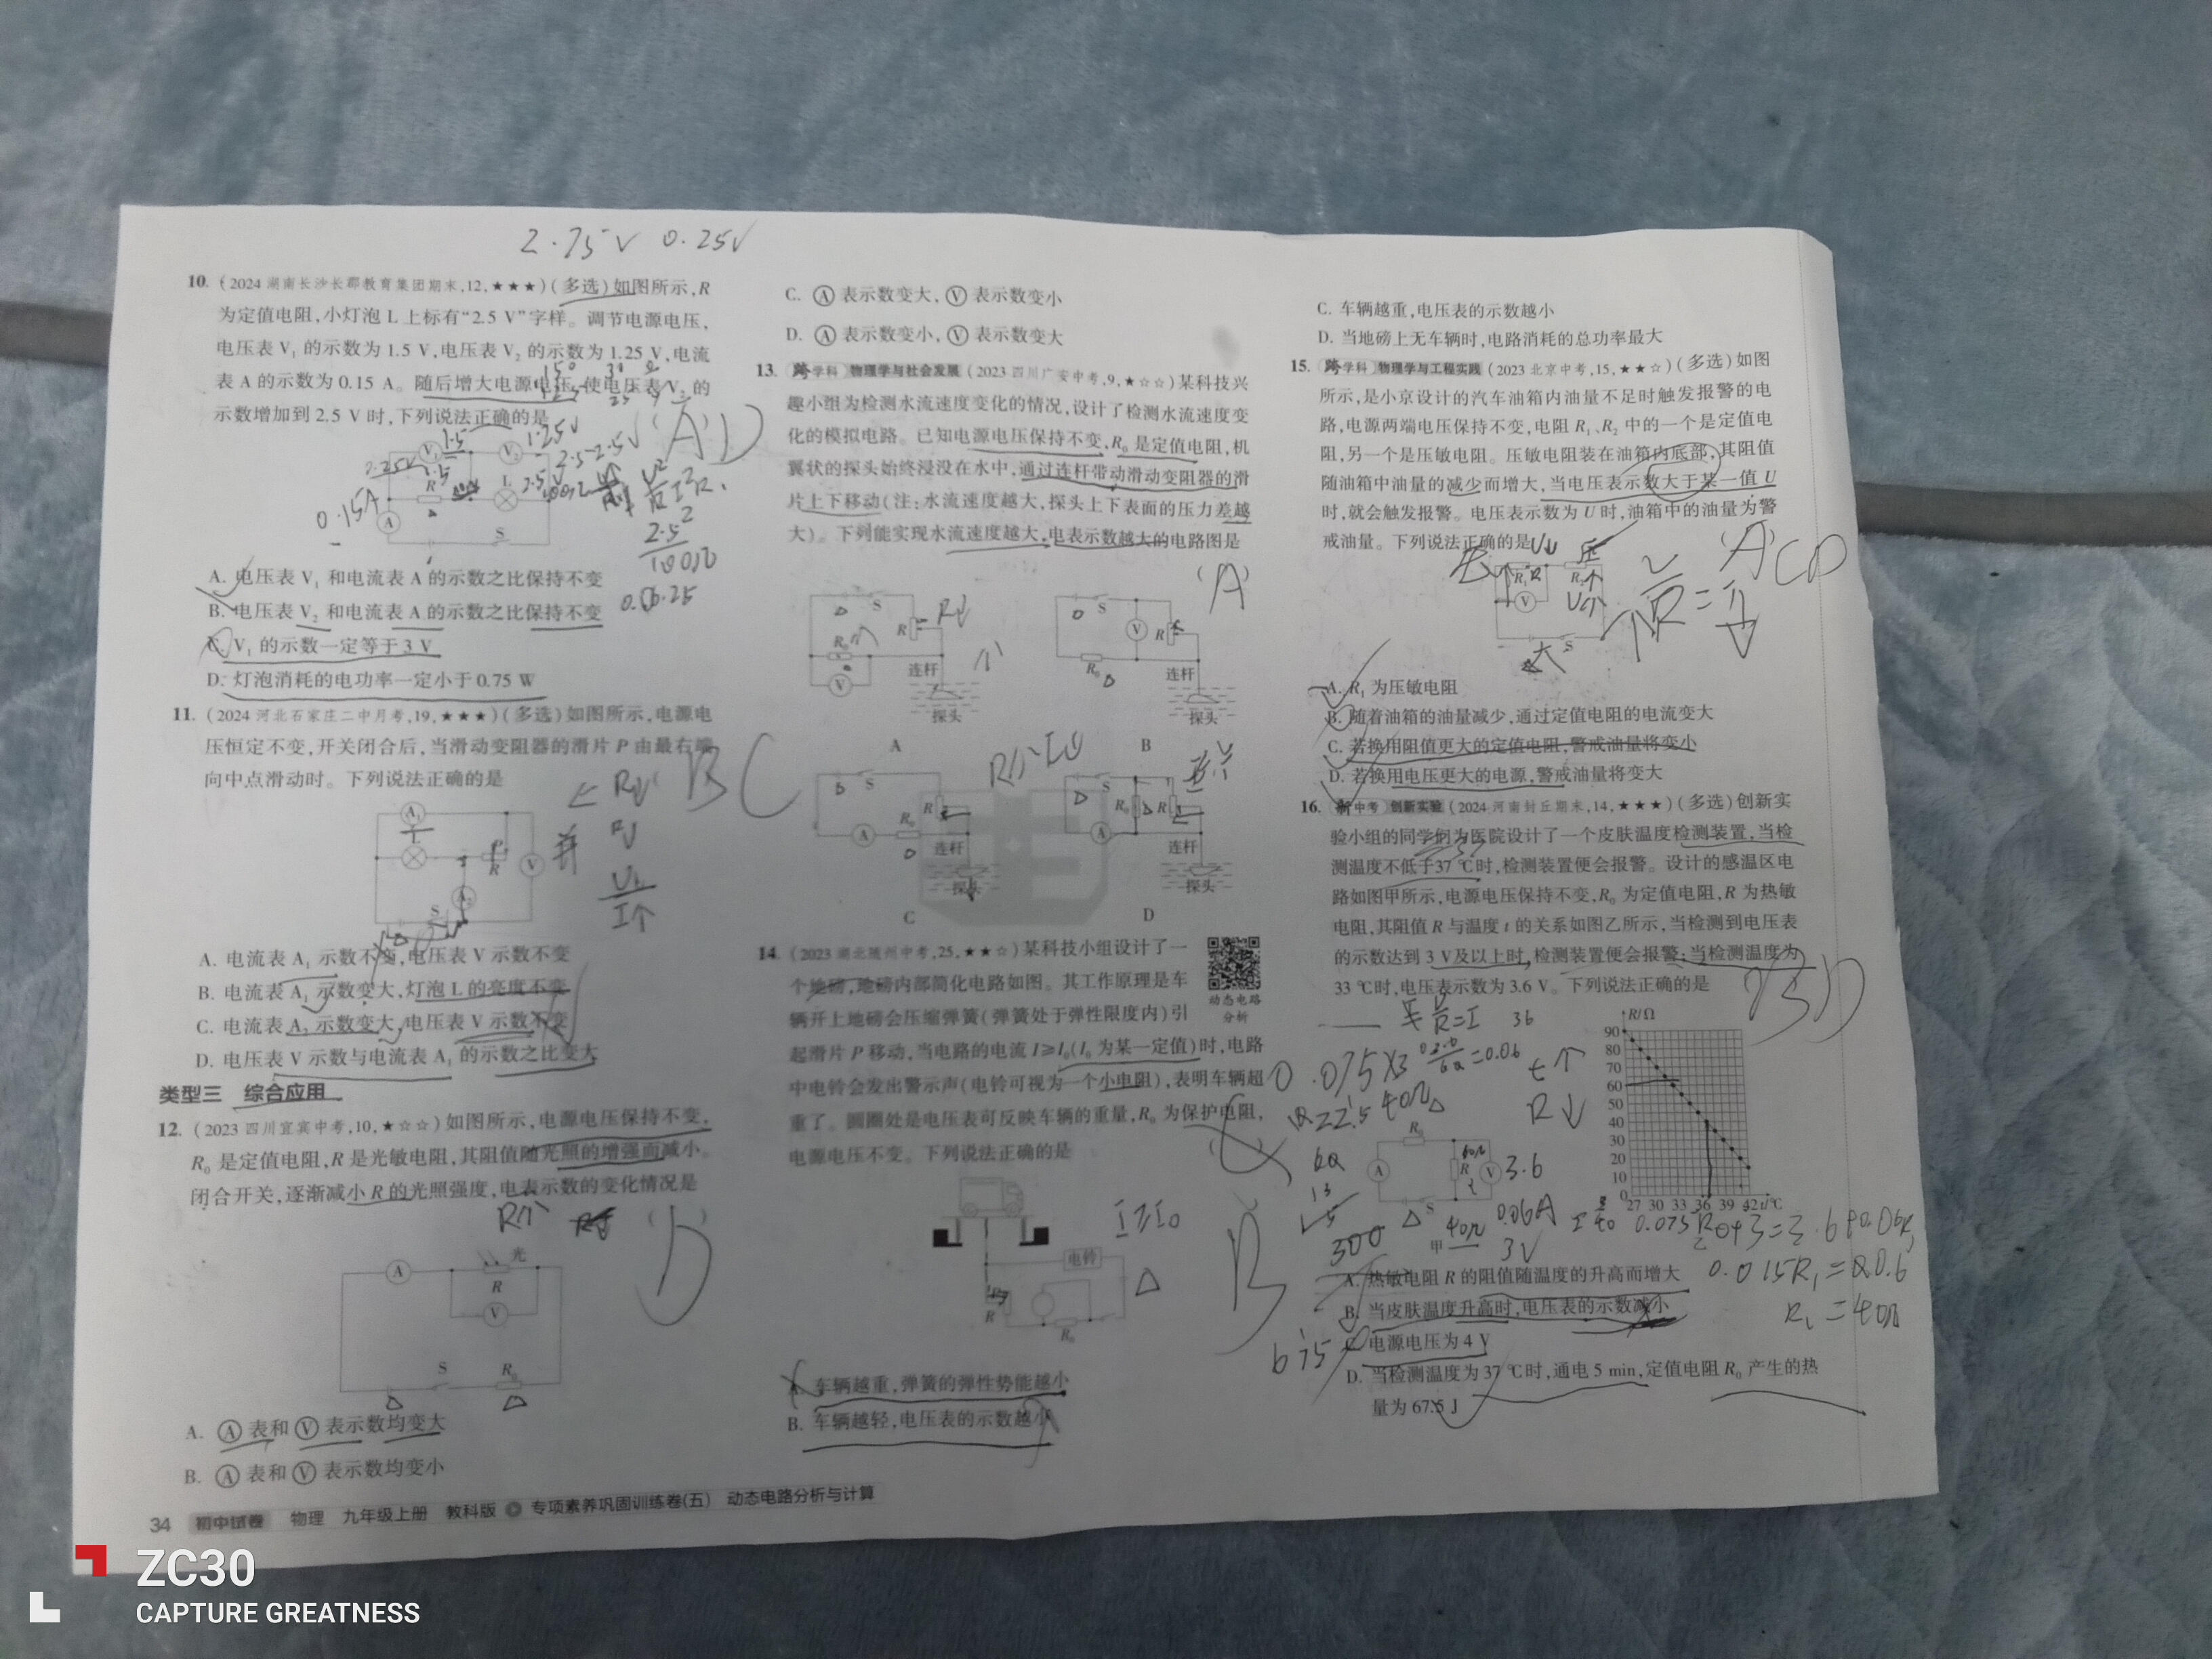 2.75V 0.25V
10. (2024湖南长沙长郡教育集团期末,12,★★★)(多选)如图所示,R
为定值电阻,小灯泡L上标有“2.5 V”字样。调节电源电压,
电压表V₁的示数为1.5 V,电压表V₂的示数为1.25 V,电流
表A的示数为0.15 A。随后增大电源电压,使电压表V₂的
示数增加到2.5 V时,下列说法正确的是
(AD
A. 电压表V₁和电流表A的示数之比保持不变
B. 电压表V₂和电流表A的示数之比保持不变
C. V₁的示数一定等于3 V
D. 灯泡消耗的电功率一定小于0.75 W
11. (2024河北石家庄二中月考,19,★★★)(多选)如图所示,电源电
压恒定不变,开关闭合后,当滑动变阻器的滑片P由最右端
向中点滑动时。下列说法正确的是
BC
A. 电流表A₁示数不变,电压表V示数不变
B. 电流表A₁示数变大,灯泡L的亮度不变
C. 电流表A₂示数变大,电压表V示数不变
D. 电压表V示数与电流表A₁的示数之比变大
类型三 综合应用
12. (2023四川宜宾中考,10,★☆☆)如图所示,电源电压保持不变,
R₀是定值电阻,R是光敏电阻,其阻值随光照的增强而减小。
闭合开关,逐渐减小R的光照强度,电表示数的变化情况是
D
光
A
R
V
S
R₀
A. Ⓐ表和Ⓥ表示数均变大
B. Ⓐ表和Ⓥ表示数均变小
34 初中试卷 物理 九年级上册 教科版 专项素养巩固训练卷(五) 动态电路分析与计算
C. Ⓐ表示数变大,Ⓥ表示数变小
D. Ⓐ表示数变小,Ⓥ表示数变大
13. 跨学科 物理学与社会发展 (2023四川广安中考,9,★☆☆)某科技兴
趣小组为检测水流速度变化的情况,设计了检测水流速度变
化的模拟电路。已知电源电压保持不变,R₀是定值电阻,机
翼状的探头始终浸没在水中,通过连杆带动滑动变阻器的滑
片上下移动(注:水流速度越大,探头上下表面的压力差越
大)。下列能实现水流速度越大,电表示数越大的电路图是
(A)
连杆
探头
连杆
探头
A B
连杆
探头
连杆
探头
C D
14. (2023湖北随州中考,25,★★☆)某科技小组设计了一
个地磅,地磅内部简化电路如图。其工作原理是车
辆开上地磅会压缩弹簧(弹簧处于弹性限度内)引
起滑片P移动,当电路的电流I≥I₀(I₀为某一定值)时,电路
中电铃会发出警示声(电铃可视为一个小电阻),表明车辆超
重了。圆圈处是电压表可反映车辆的重量,R₀为保护电阻,
电源电压不变。下列说法正确的是
动态电路
分析
电铃
I≥I₀
B
A. 车辆越重,弹簧的弹性势能越小
B. 车辆越轻,电压表的示数越小
C. 车辆越重,电压表的示数越小
D. 当地磅上无车辆时,电路消耗的总功率最大
15. 跨学科 物理学与工程实践 (2023北京中考,15,★★☆)(多选)如图
所示,是小京设计的汽车油箱内油量不足时触发报警的电
路,电源两端电压保持不变,电阻R₁、R₂中的一个是定值电
阻,另一个是压敏电阻。压敏电阻装在油箱内底部,其阻值
随油箱中油量的减少而增大,当电压表示数大于某一值U
时,就会触发报警。电压表示数为U时,油箱中的油量为警
戒油量。下列说法正确的是
(A)CD
A. R₁为压敏电阻
B. 随着油箱的油量减少,通过定值电阻的电流变大
C. 若换用阻值更大的定值电阻,警戒油量将变小
D. 若换用电压更大的电源,警戒油量将变大
16. 新中考 创新实验 (2024河南封丘期末,14,★★★)(多选)创新实
验小组的同学们为医院设计了一个皮肤温度检测装置,当检
测温度不低于37 ℃时,检测装置便会报警。设计的感温区电
路如图甲所示,电源电压保持不变,R₀为定值电阻,R为热敏
电阻,其阻值R与温度t的关系如图乙所示,当检测到电压表
的示数达到3 V及以上时,检测装置便会报警;当检测温度为
33 ℃时,电压表示数为3.6 V。下列说法正确的是
BD
R/Ω
90
80
70
60
50
40
30
20
10
0
27 30 33 36 39 42 t/℃
甲
A. 热敏电阻R的阻值随温度的升高而增大
B. 当皮肤温度升高时,电压表的示数减小
C. 电源电压为4 V
D. 当检测温度为37 ℃时,通电5 min,定值电阻R₀产生的热
量为67.5 J
0.015R₁=0.6
R₁=40Ω
ZC30
CAPTURE GREATNESS